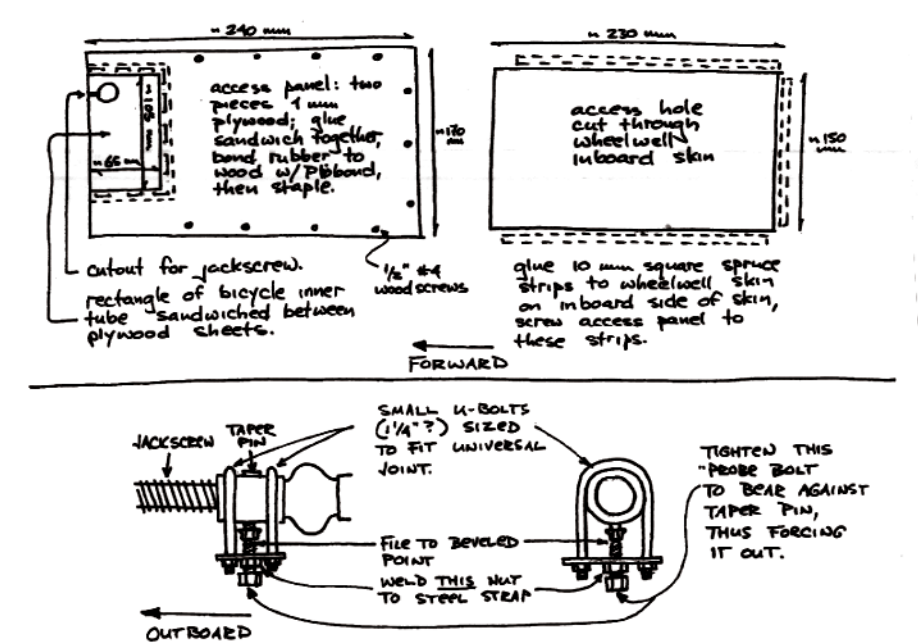 ~ 240 mm
access panel: two
pieces 1 mm
plywood; glue
sandwich together,
bond rubber to
wood w/Pliobond,
then staple.
~105 mm
~65 mm
~170
mm
cutout for jackscrew.
rectangle of bicycle inner
tube sandwiched between
plywood sheets.
1/2" #4
woodscrews
~ 230 mm
access hole
cut through
wheelwell
inboard skin
~150
mm
glue 10 mm square spruce
strips to wheelwell skin
on inboard side of skin,
screw access panel to
these strips.
FORWARD
JACKSCREW
TAPER
PIN
SMALL U-BOLTS
(1 1/4" ?) SIZED
TO FIT UNIVERSAL
JOINT.
FILE TO BEVELED
POINT
WELD THIS NUT
TO STEEL STRAP
TIGHTEN THIS
"PROBE BOLT
TO BEAR AGAINST
TAPER PIN,
THUS FORCING
IT OUT.
OUTBOARD